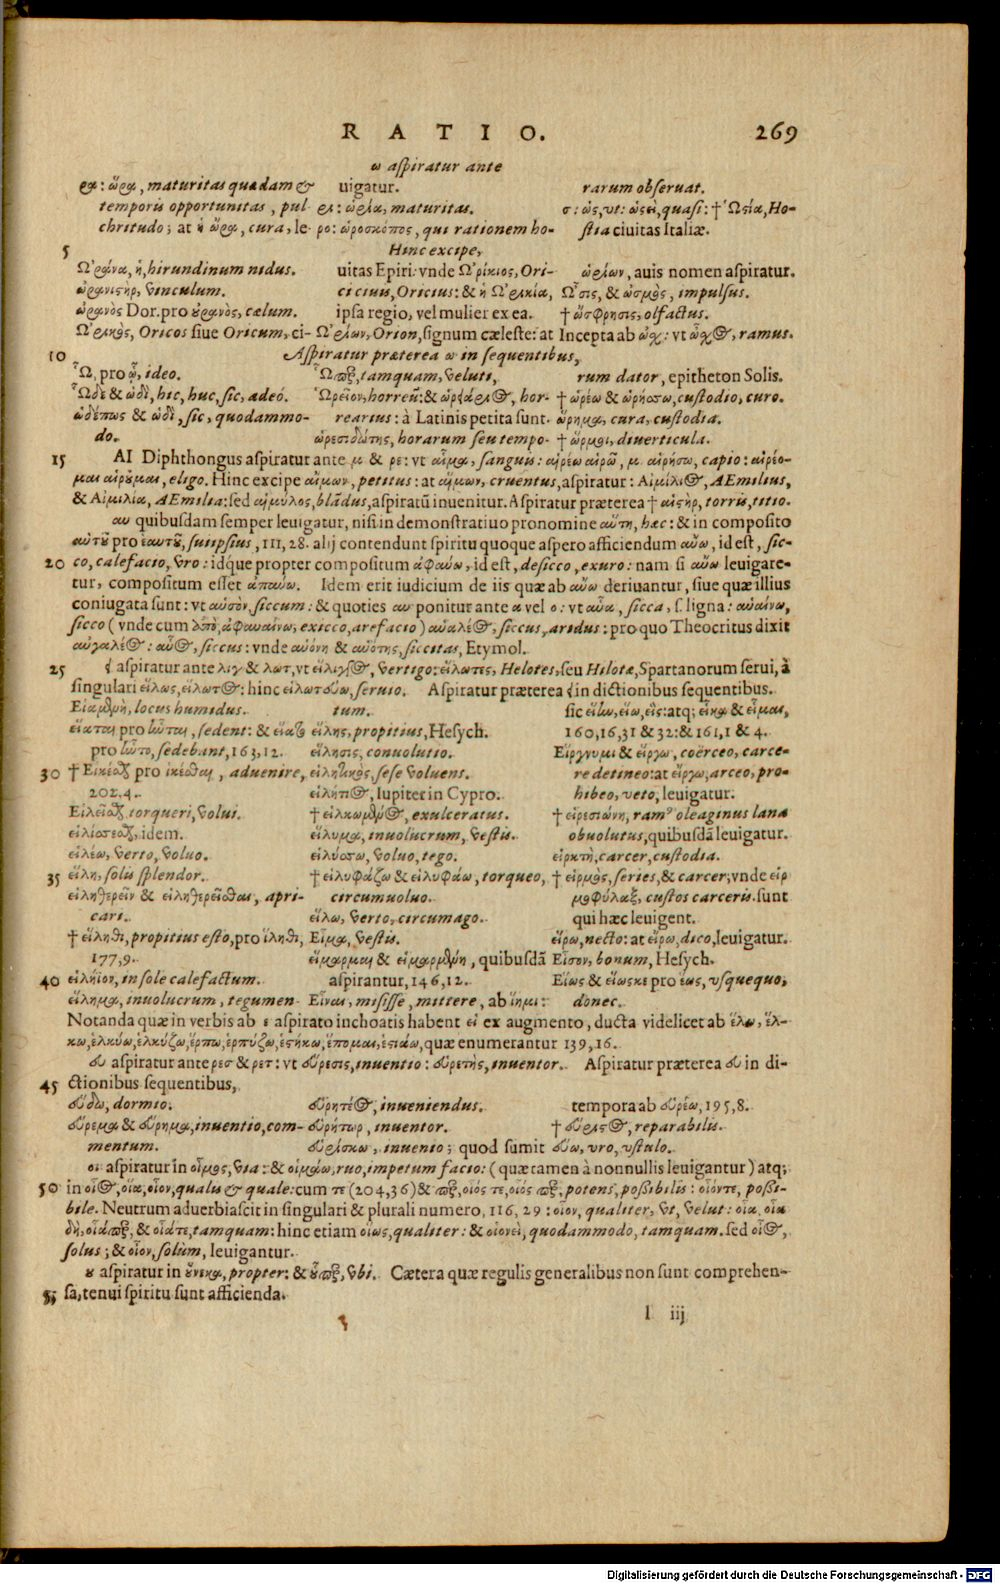 RATIO. 269
ω aspiratur ante
ρα: ὥρα, maturitas quædam &
temporis opportunitas, pul-
chritudo; at ἡ ὤρα, cura, le-
uigatur.
ρι: ὡρία, maturitas.
ρο: ὡροσκόπος, qui rationem ho-
rarum obseruat.
σ: ὡς, vt: ὡσεὶ, quasi: † Ὡσία, Ho-
stia ciuitas Italiæ.
5 Hinc excipe,
Ὠράνα, ἡ, hirundinum nidus.
ὠρανιστὴρ, vinculum.
ὠρανὸς Dor. pro οὐρανὸς, cælum.
Ὠρικὸς, Oricos siue Oricum, ci-
uitas Epiri: vnde Ὠρίκιος, Ori-
ciciuis, Oricius: & ἡ Ὠρικία,
ipsa regio, vel mulier ex ea.
Ὠρίων, Orion, signum cæleste: at
ὡρίων, auis nomen aspiratur.
Ὦσις, & ὠσμὸς, impulsus.
† ὤσφρησις, olfactus.
Incepta ab ὠχ: vt ὦχος, ramus.
10 Aspiratur præterea ω in sequentibus,
Ὧ, pro ᾧ, ideo.
Ὧδε & ὡδὶ, hic, huc, sic, adeò.
ὡδέπως & ὡδὶ, sic, quodammo-
do.
Ὥσπερ, tamquam, veluti,
Ὡρεῖον, horreũ: & ὡριάριος, hor-
rearius: à Latinis petita sunt.
ὡρεσιδώτης, horarum seu tempo-
rum dator, epitheton Solis.
† ὡρέω & ὡρήσσω, custodio, curo.
ὥρημα, cura, custodia.
† ὥρμαι, diuerticula.
15 AI Diphthongus aspiratur ante μ & ρε: vt αἷμα, sanguis: αἱρέω αἱρῶ, μ. αἱρήσω, capio: αἱρέο-
μαι αἱροῦμαι, eligo. Hinc excipe αἴμων, peritus: at αἵμων, cruentus, aspiratur: Αἱμίλιος, AEmilius,
& Αἱμιλία, AEmilia: sed αἱμύλος, blãdus, aspiratũ inuenitur. Aspiratur præterea † αἱστὴρ, torris, titio.
αυ quibusdam semper leuigatur, nisi in demonstratiuo pronomine αὕτη, hæc: & in composito
αὑτοῦ pro ἑαυτοῦ, suiipsius, 111, 28. alij contendunt spiritu quoque aspero afficiendum αὕω, id est, sic-
20 co, calefacio, vro: idque propter compositum ἀφαύω, id est, desicco, exuro: nam si αὔω leuigare-
tur, compositum esset ἀπαύω. Idem erit iudicium de iis quæ ab αὕω deriuantur, siue quæ illius
coniugata sunt: vt αὑσὸν, siccum: & quoties αυ ponitur ante α vel ο: vt αὗα, sicca, s. ligna: αὑαίνω,
sicco (vnde cum ἀπὸ, ἀφαυαίνω, exicco, arefacio) αὑαλέος, siccus, aridus: pro quo Theocritus dixit
αὑγαλέος: αὗος, siccus: vnde αὑόνη & αὑότης, siccitas, Etymol.
25 εἰ aspiratur ante λιγ & λωτ, vt εἵλιγγος, vertigo: εἵλωτες, Helotes, seu Hilotæ, Spartanorum serui, à
singulari εἵλως, εἵλωτος: hinc εἱλωτεύω, seruio. Aspiratur præterea εἰ in dictionibus sequentibus.
Εἱαμενὴ, locus humidus.
εἵαται pro ἧνται, sedent: & εἵατο
pro ἧντο, sedebant, 163, 12.
30 † Εἱκέσθαι pro ἱκέσθαι, aduenire,
202.4.
Εἱλεῖσθαι torqueri, volui.
εἱλίσσεσθαι, idem.
εἱλέω, verto, voluo.
35 εἵλη, solis splendor.
εἱληθερεῖν & εἱληθερεῖσθαι, apri-
cari.
† εἵληθι, propitius esto, pro ἵληθι,
177, 9.
40 εἱλήϊον, in sole calefactum.
εἵλημα, inuolucrum, tegumen-
tum.
εἵλης, propitius, Hesych.
εἵλησις, conuolutio.
εἱλητικὸς, sese voluens.
εἱλήτιος, Iupiter in Cypro.
† εἱλκωμένος, exulceratus.
εἵλυμα, inuolucrum, vestis.
εἱλύσσω, voluo, tego.
† εἱλυφάζω & εἱλυφάω, torqueo,
circumuoluo.
εἵλω, verto, circumago.
Εἷμα, vestis.
εἵμαρμαι & εἱμαρμένη, quibusdã
aspirantur, 146, 12.
Εἷναι, misisse, mittere, ab ἵημι:
sic εἵσω, εἵω, εἷς: atq; εἷκα & εἷμαι,
160, 16, 31 & 32: & 161, 1 & 4.
Εἵργνυμι & εἵργω, coërceo, carce-
re detineo: at εἴργω, arceo, pro-
hibeo, veto, leuigatur.
† εἱρεσιώνη, ramꝰ oleaginus lana
obuolutus, quibusdã leuigatur.
εἱρκτὴ, carcer, custodia.
† εἱρμὸς, series, & carcer; vnde εἱρ
μοφύλαξ, custos carceris. sunt
qui hæc leuigent.
εἵρω, necto: at εἴρω, dico, leuigatur.
Εἷσον, bonum, Hesych.
Εἵως & εἵωσκε pro ἕως, vsquequo,
donec.
Notanda quæ in verbis ab ε aspirato inchoatis habent ει ex augmento, ducta videlicet ab ἕλω, ἕλ-
κω, ἑλκύω, ἑλκύζω, ἕρπω, ἑρπύζω, ἑστήκω, ἕπομαι, ἑστιάω, quæ enumerantur 139, 16.
ευ aspiratur ante ρεσ & ρετ: vt εὕρεσις, inuentio: εὑρετὴς, inuentor. Aspiratur præterea ευ in di-
45 ctionibus sequentibus,
εὕδω, dormio.
εὕρεμα & εὕρημα, inuentio, com-
mentum.
εὑρητέος, inueniendus.
εὑρήτωρ, inuentor.
εὑρίσκω, inuenio; quod sumit
tempora ab εὑρέω, 195, 8.
† εὕριστος, reparabilis.
εὕω, vro, vstulo.
οι aspiratur in οἷμος, via: & οἱμάω, ruo, impetum facio: (quæ tamen à nonnullis leuigantur) atq;
50 in οἷος, οἵα, οἷον, qualis & quale: cum τε (204, 36) & περ, οἷός τε, οἷός περ, potens, poßibilis: οἷόντε, poßi-
bile. Neutrum aduerbiascit in singulari & plurali numero, 116, 29: οἷον, qualiter, vt, velut: οἷα, οἷα
δὴ, οἷάπερ, & οἷάτε, tamquam: hinc etiam οἵως, qualiter: & οἱονεὶ, quodammodo, tamquam. sed οἶος,
solus; & οἶον, solùm, leuigantur.
ου aspiratur in οὕνεκα, propter: & οὗπερ, vbi. Cætera quæ regulis generalibus non sunt comprehen-
55 sa, tenui spiritu sunt afficienda.
l iij
Digitalisierung gefördert durch die Deutsche Forschungsgemeinschaft - DFG